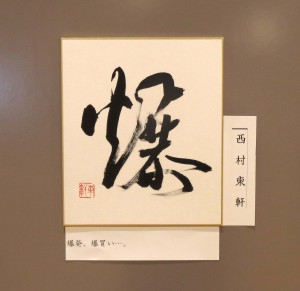 爆
西村東軒
爆発、爆買い…。